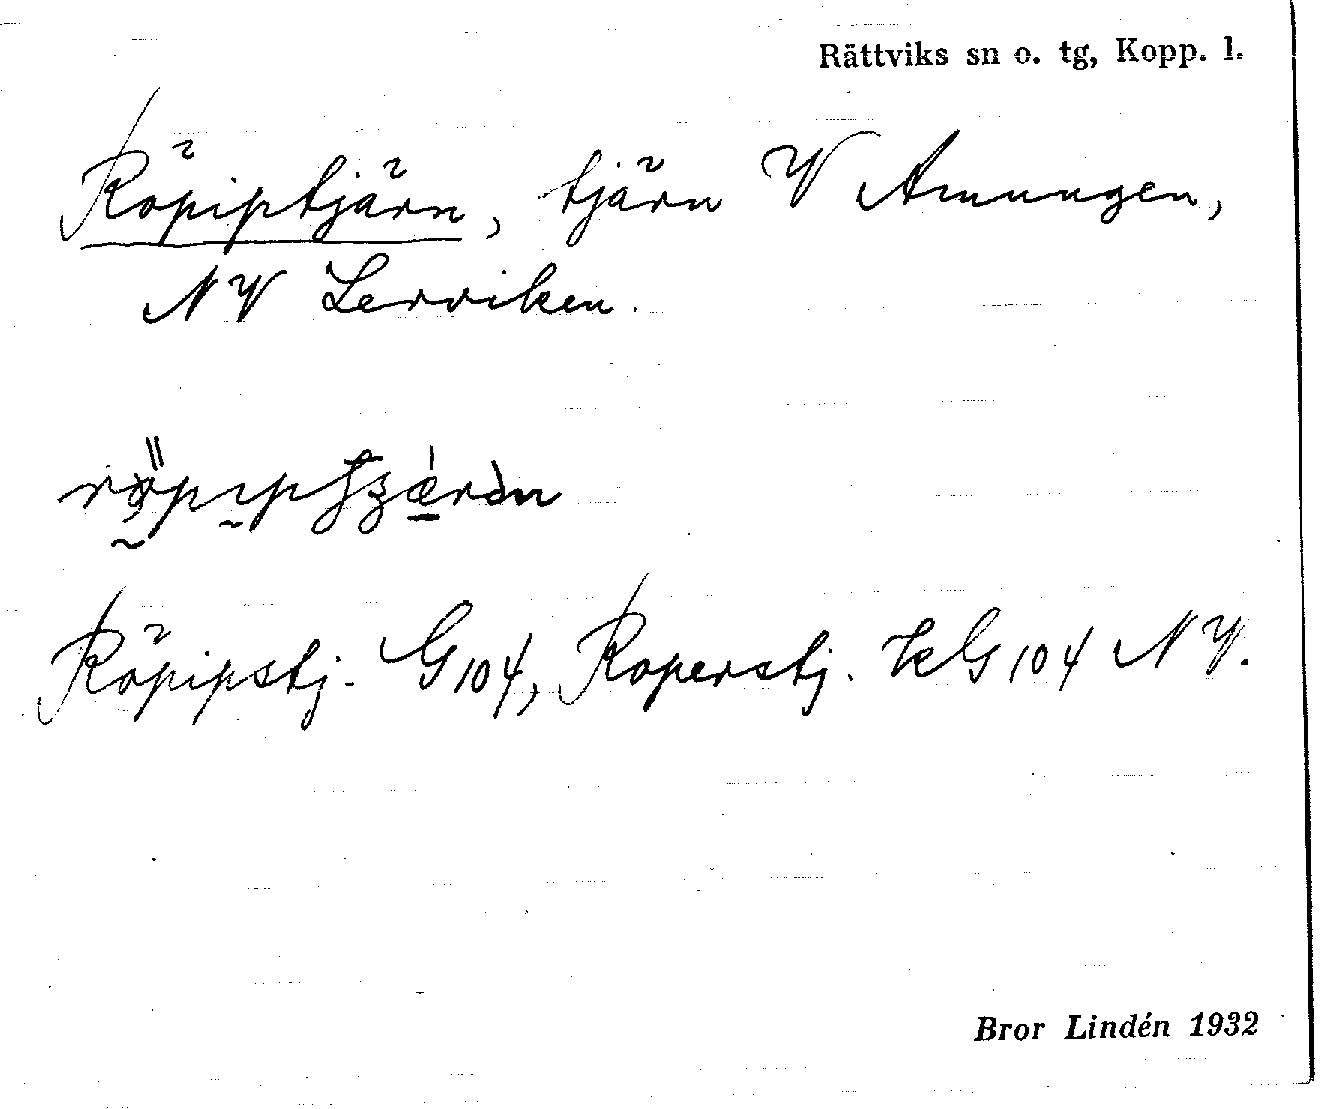 Rättviks sn o. tg, Kopp. l.
Röpiptjärn, tjärn V Amungen,
NV Lerviken.
Röpipstj. G104, Roperstj. KG104 NV.
Bror Lindén 1932